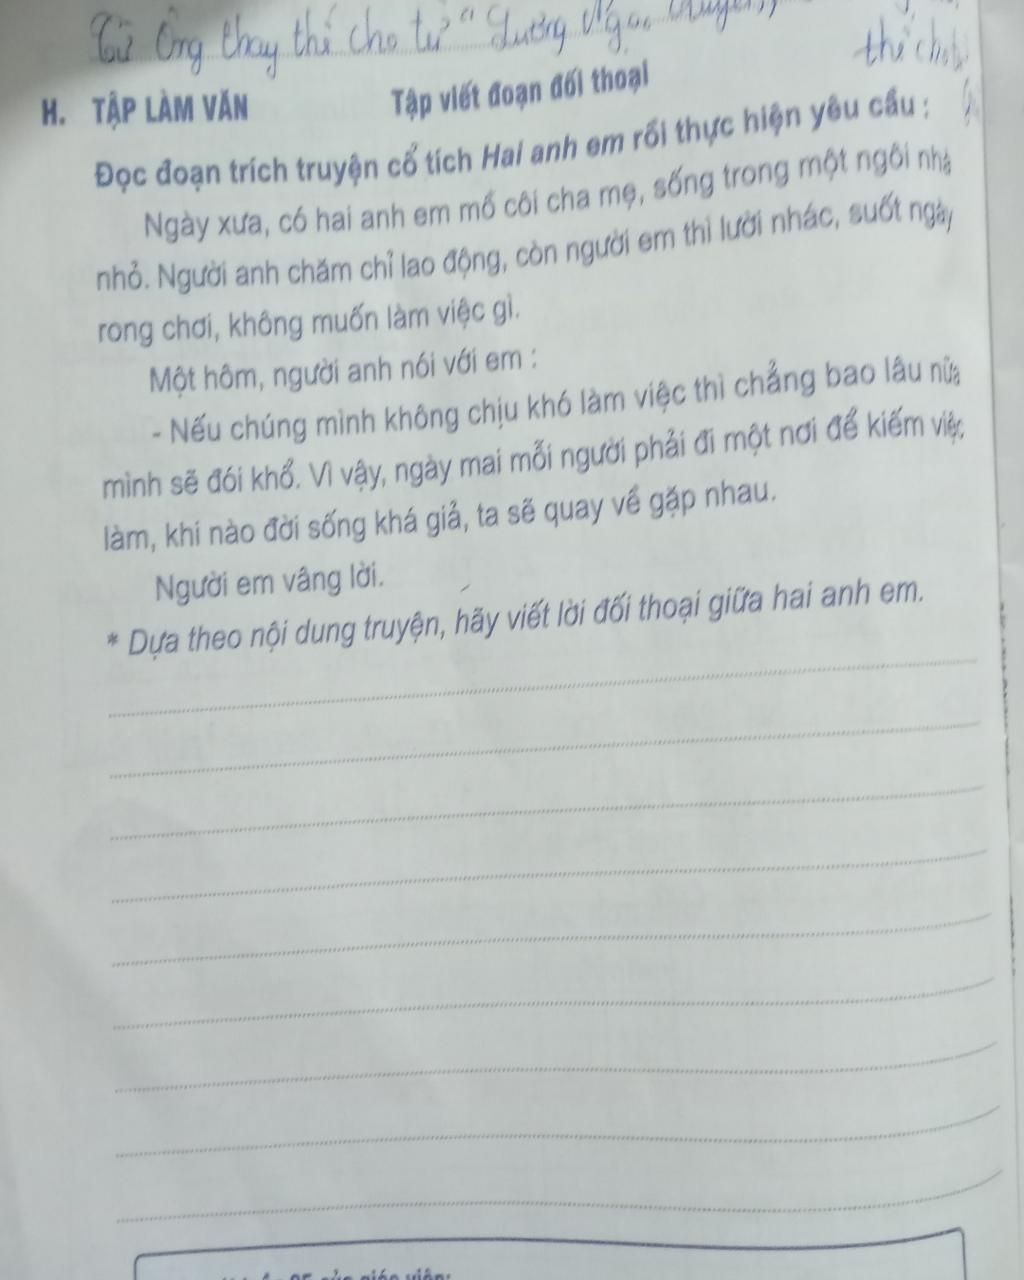 Từ Ông thay thế cho từ "Lương Ngọc Quyến"
thế cho từ
H. TẬP LÀM VĂN Tập viết đoạn đối thoại
Đọc đoạn trích truyện cổ tích Hai anh em rồi thực hiện yêu cầu :
Ngày xưa, có hai anh em mồ côi cha mẹ, sống trong một ngôi nhà
nhỏ. Người anh chăm chỉ lao động, còn người em thì lười nhác, suốt ngày
rong chơi, không muốn làm việc gì.
Một hôm, người anh nói với em :
- Nếu chúng mình không chịu khó làm việc thì chẳng bao lâu nữa
mình sẽ đói khổ. Vì vậy, ngày mai mỗi người phải đi một nơi để kiếm việc
làm, khi nào đời sống khá giả, ta sẽ quay về gặp nhau.
Người em vâng lời.
* Dựa theo nội dung truyện, hãy viết lời đối thoại giữa hai anh em.
của giáo viên: